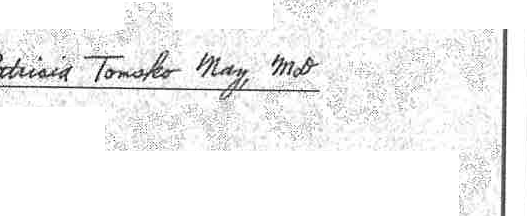 Patricia Tomsko May, MD